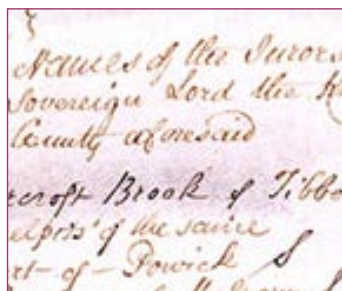 Names of the Jurors
Sovereign Lord the K
County aforesaid
rcroft Brook of Tibbe
of the same
rt - of - Powick S